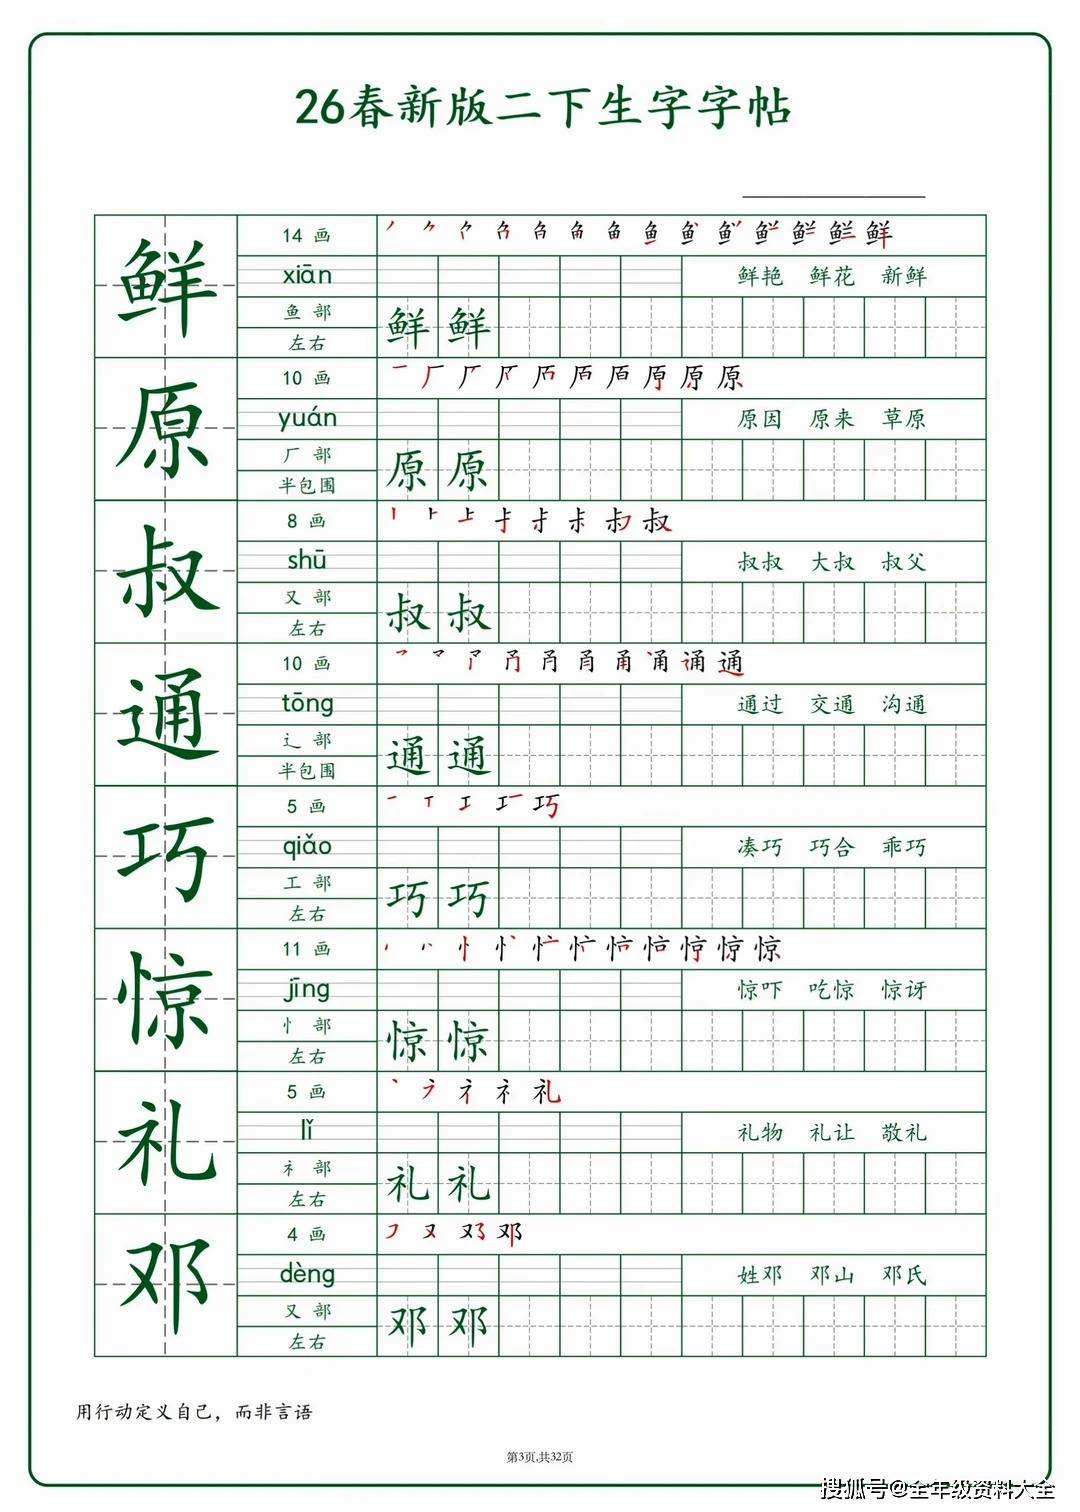 26春新版二下生字字帖
鲜
14 画
xiān
鲜艳 鲜花 新鲜
鱼 部
左右
鲜 鲜
原
10 画
yuán
原因 原来 草原
厂 部
半包围
原 原
叔
8 画
shū
叔叔 大叔 叔父
又 部
左右
叔 叔
通
10 画
tōng
通过 交通 沟通
辶 部
半包围
通 通
巧
5 画
qiǎo
凑巧 巧合 乖巧
工 部
左右
巧 巧
惊
11 画
jīng
惊吓 吃惊 惊讶
忄 部
左右
惊 惊
礼
5 画
lǐ
礼物 礼让 敬礼
礻 部
左右
礼 礼
邓
4 画
dèng
姓邓 邓山 邓氏
又 部
左右
邓 邓
用行动定义自己，而非言语
第3页,共32页
搜狐号@全年级资料大全